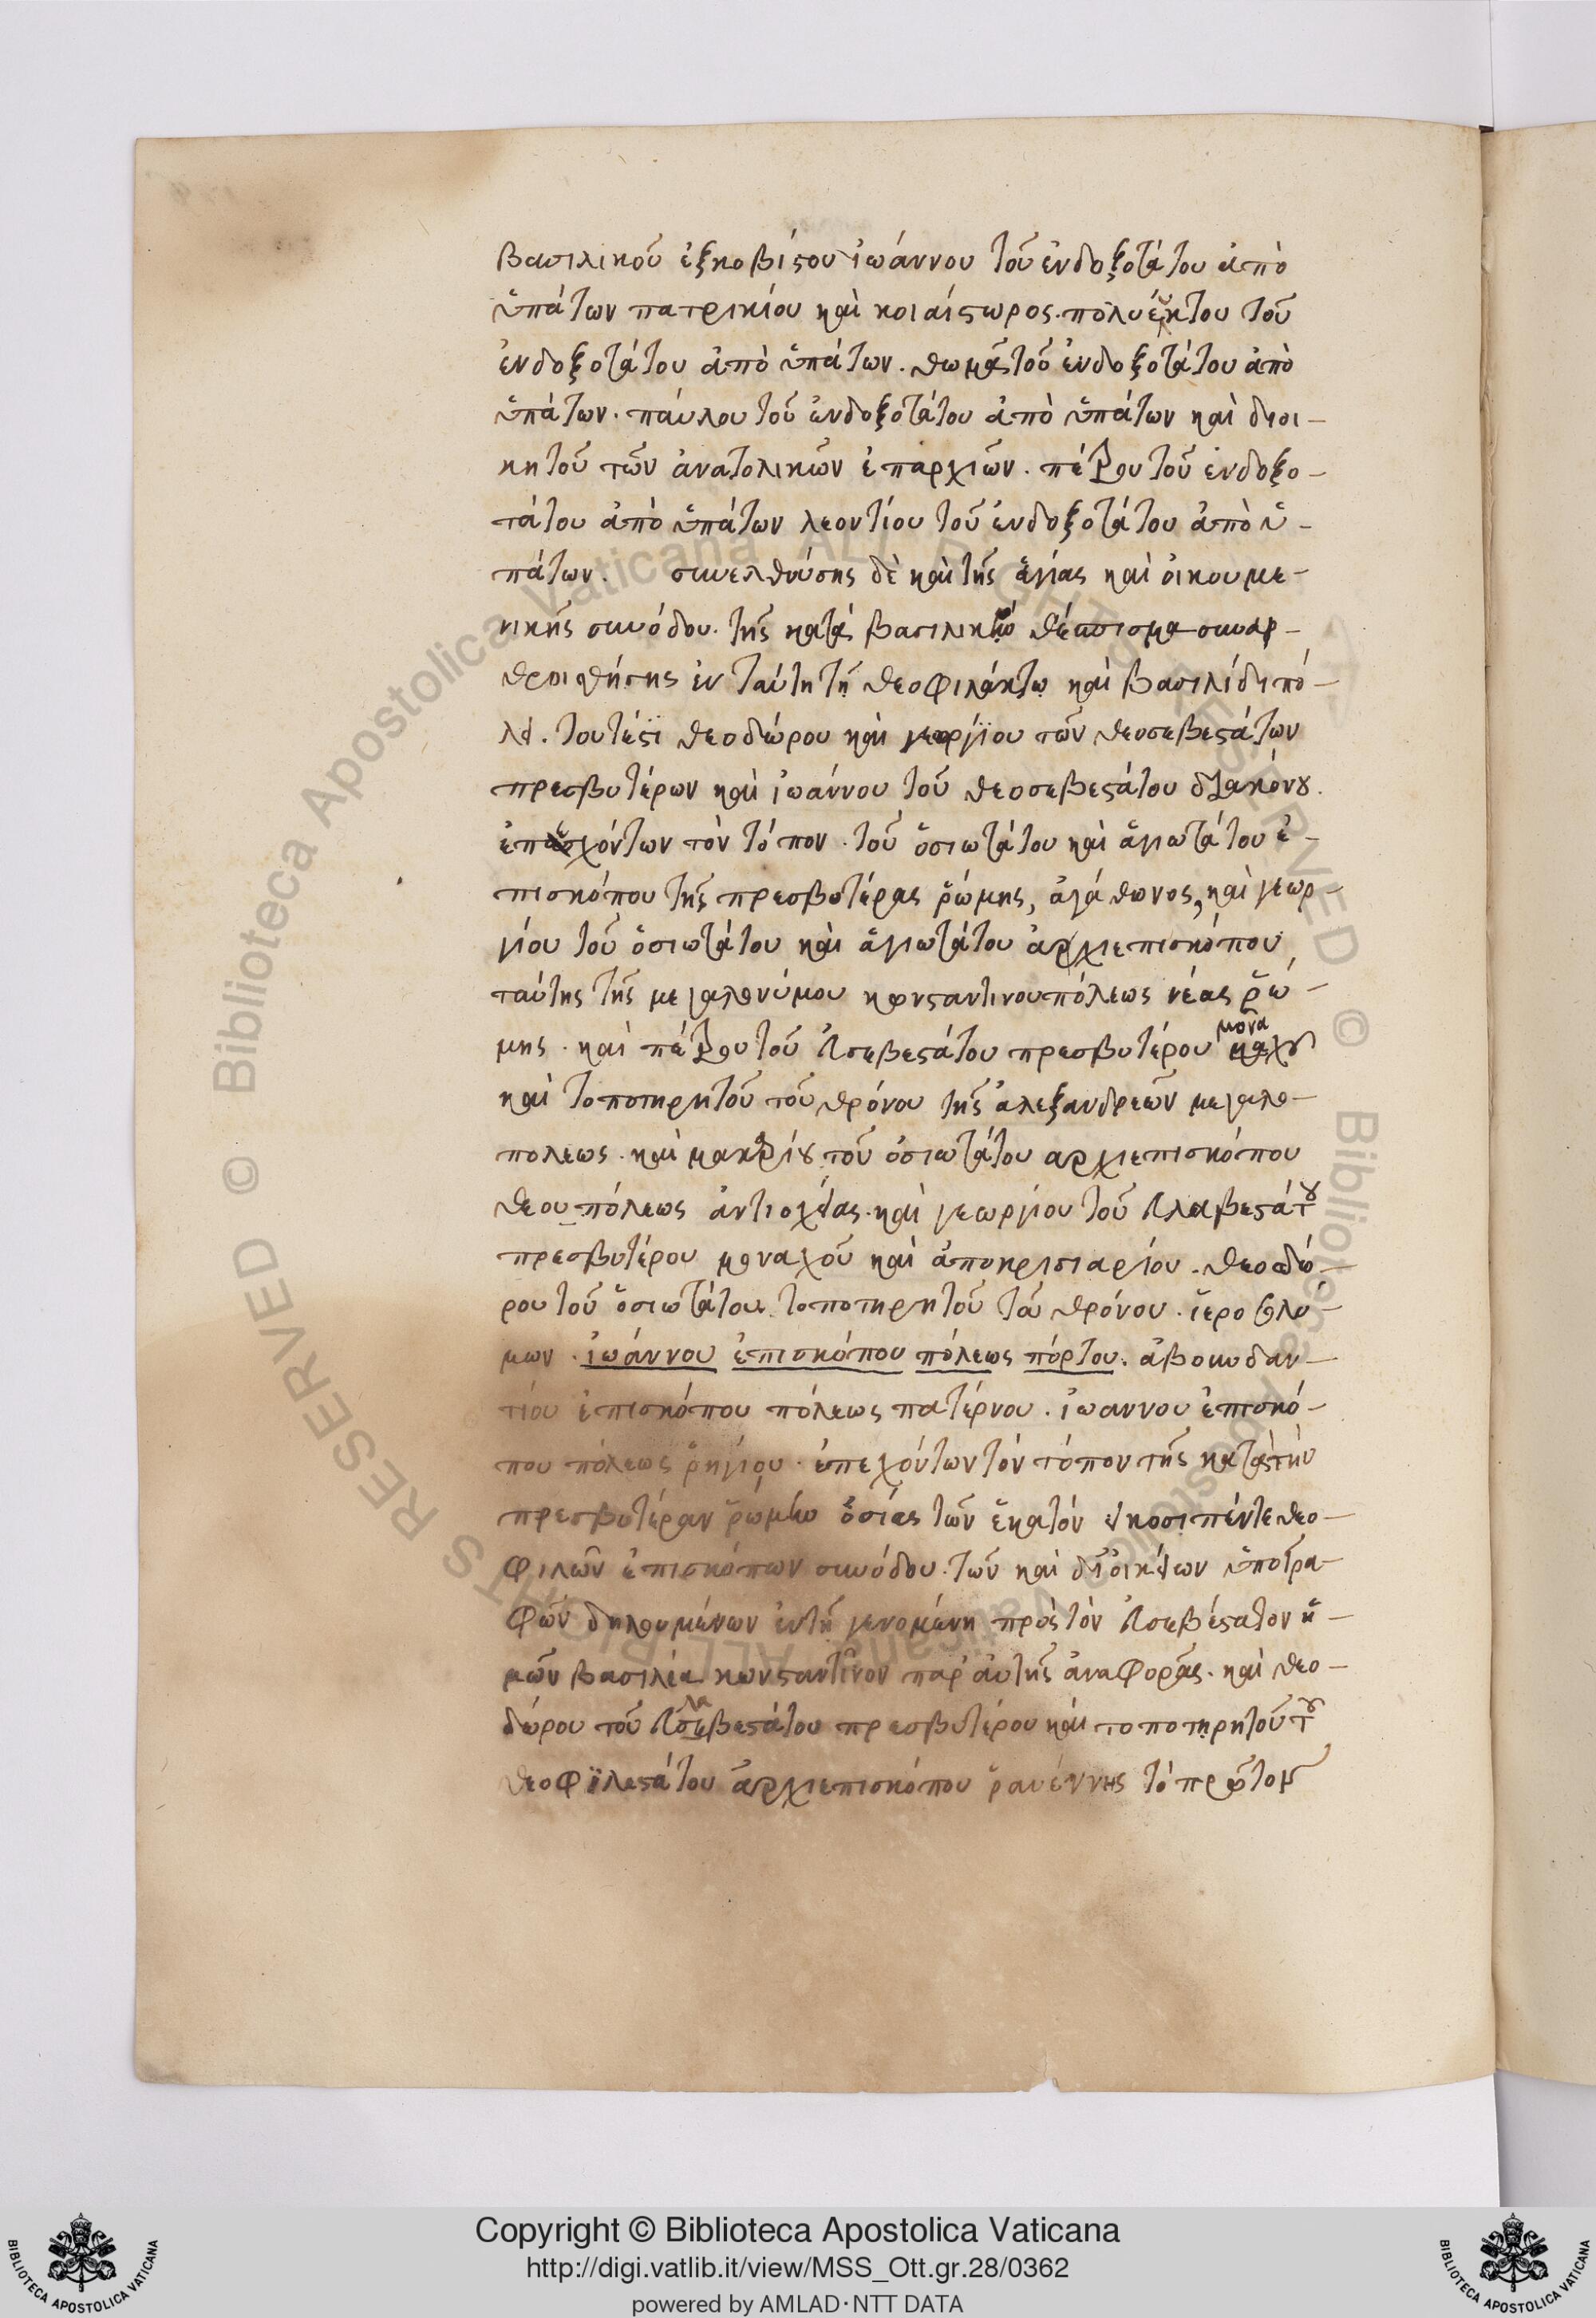 βασιλικοῦ ἐξκοβίτου ἰωάννου τοῦ ἐνδοξοτάτου ἀπὸ
ὑπάτων πατρικίου καὶ κοιαίστωρος. πολυεύκτου τοῦ
ἐνδοξοτάτου ἀπὸ ὑπάτων. θωμᾶ τοῦ ἐνδοξοτάτου ἀπὸ
ὑπάτων. παύλου τοῦ ἐνδοξοτάτου ἀπὸ ὑπάτων καὶ διοι–
κητοῦ τῶν ἀνατολικῶν ἐπαρχιῶν. πέτρου τοῦ ἐνδοξο–
τάτου ἀπὸ ὑπάτων λεοντίου τοῦ ἐνδοξοτάτου ἀπὸ ὑ–
πάτων. συνελθούσης δὲ καὶ τῆς ἁγίας καὶ οἰκουμε–
νικῆς συνόδου. τῆς κατὰ βασιλικὸν θέσπισμα συναθ–
θροισθήσης ἐν ταύτη τῇ θεοφιλάκτῳ καὶ βασιλίδι πό–
λει. τουτέστι θεοδώρου καὶ γεωργίου τῶν θεοσεβεστάτων
πρεσβυτέρων καὶ ἰωάννου τοῦ θεοσεβεστάτου διακόνου.
ἐπεχόντων τὸν τόπον. τοῦ ὁσιωτάτου καὶ ἁγιωτάτου ἐ–
πισκόπου τῆς πρεσβυτέρας ῥώμης, ἀγάθωνος, καὶ γεωρ–
γίου τοῦ ὁσιωτάτου καὶ ἁγιωτάτου ἀρχιεπισκόπου
ταύτης τῆς μεγαλωνύμου κωνσταντινουπόλεως νέας ῥώ–
μης. καὶ πέτρου τοῦ εὐσεβεστάτου πρεσβυτέρου μοναχοῦ
καὶ τοποτηρητοῦ τοῦ θρόνου τῆς ἀλεξανδρεῶν μεγαλο–
πολεως. καὶ μακαρίου τοῦ ὁσιωτάτου αρχιεπισκόπου
θεουπόλεως ἀντιοχείας. καὶ γεωργίου τοῦ εὐλαβεστάτου
πρεσβυτέρου μοναχοῦ καὶ ἀποκρισιαρίου. θεοδώ–
ρου τοῦ ὁσιωτάτου τοποτηρητοῦ τοῦ θρόνου. ἱεροσολύ–
μων. ἰωάννου ἐπισκόπου πόλεως πόρτου. ἀβουνδαν–
τίου ἐπισκόπου πόλεως πατέρνου. ἰωαννου ἐπισκό–
που πόλεως ῥηγίου. ἐπεχόντων τὸν τόπον τῆς κατὰ τὴν
πρεσβυτέραν ῥώμην ὁσίας τῶν ἑκατόν εἰκοσιπέντε θεο–
φιλῶν ἐπισκόπων συνόδου. τῶν καὶ δι' οἰκείων ὑπογρα–
φῶν δηλουμένων ἐν τῇ γενομένη πρὸς τὸν εὐσεβέστατον ἡ–
μῶν βασιλέα κωνσταντῖνον παρ' αὐτῆς ἀναφορᾶς. καὶ θεο–
δώρου τοῦ εὐλαβεστάτου πρεσβυτέρου καὶ τοποτηρητοῦ τοῦ
θεοφϊλεστάτου ἀρχιεπισκόπου ῥαυέννης τὸ πρῶτον
Copyright © Biblioteca Apostolica Vaticana
http://digi.vatlib.it/view/MSS_Ott.gr.28/0362
powered by AMLAD·NTT DATA
BIBLIOTECA APOSTOLICA VATICANA
BIBLIOTECA APOSTOLICA VATICANA
© Biblioteca Apostolica Vaticana ALL RIGHTS RESERVED
© Biblioteca Apostolica Vaticana ALL RIGHTS RESERVED